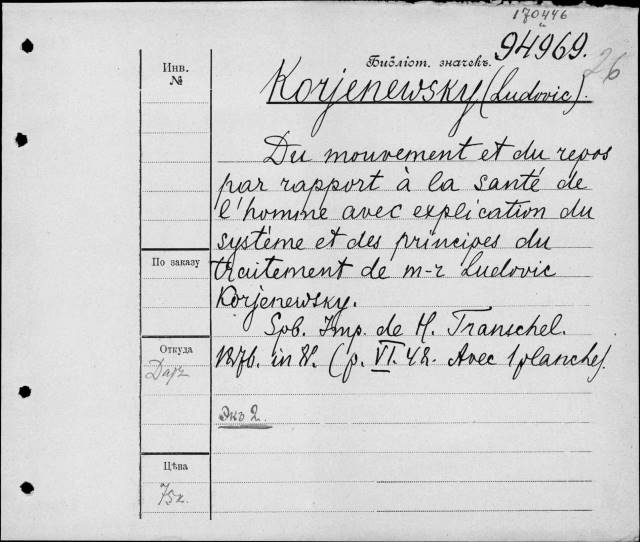 170446
94969.
26
Инв.
№
Библіот. значекъ.
Korjenewsky (Ludovic).
Du mouvement et du repos
par rapport à la santé de
l'homme avec explication du
système et des principes du
traitement de m-r Ludovic
Korjenewsky.
Spb. Imp. de H. Transchel.
1876. in 8º. (p. VI. 48. Avec 1 planche).
По заказу
Откуда
Экз 2.
Цѣна
75к.